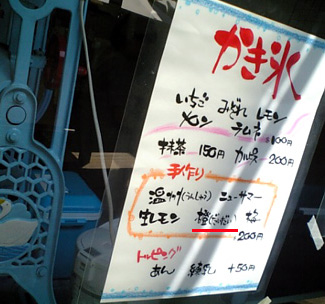 かき氷
いちご みぞれ レモン
メロン ラムネ 100円
抹茶 150円 カルピス 200円
手作り
温州(うんしゅう) ニューサマー
生レモン 橙(だいだい) 梅
200円
トッピング
あん 練乳 +50円